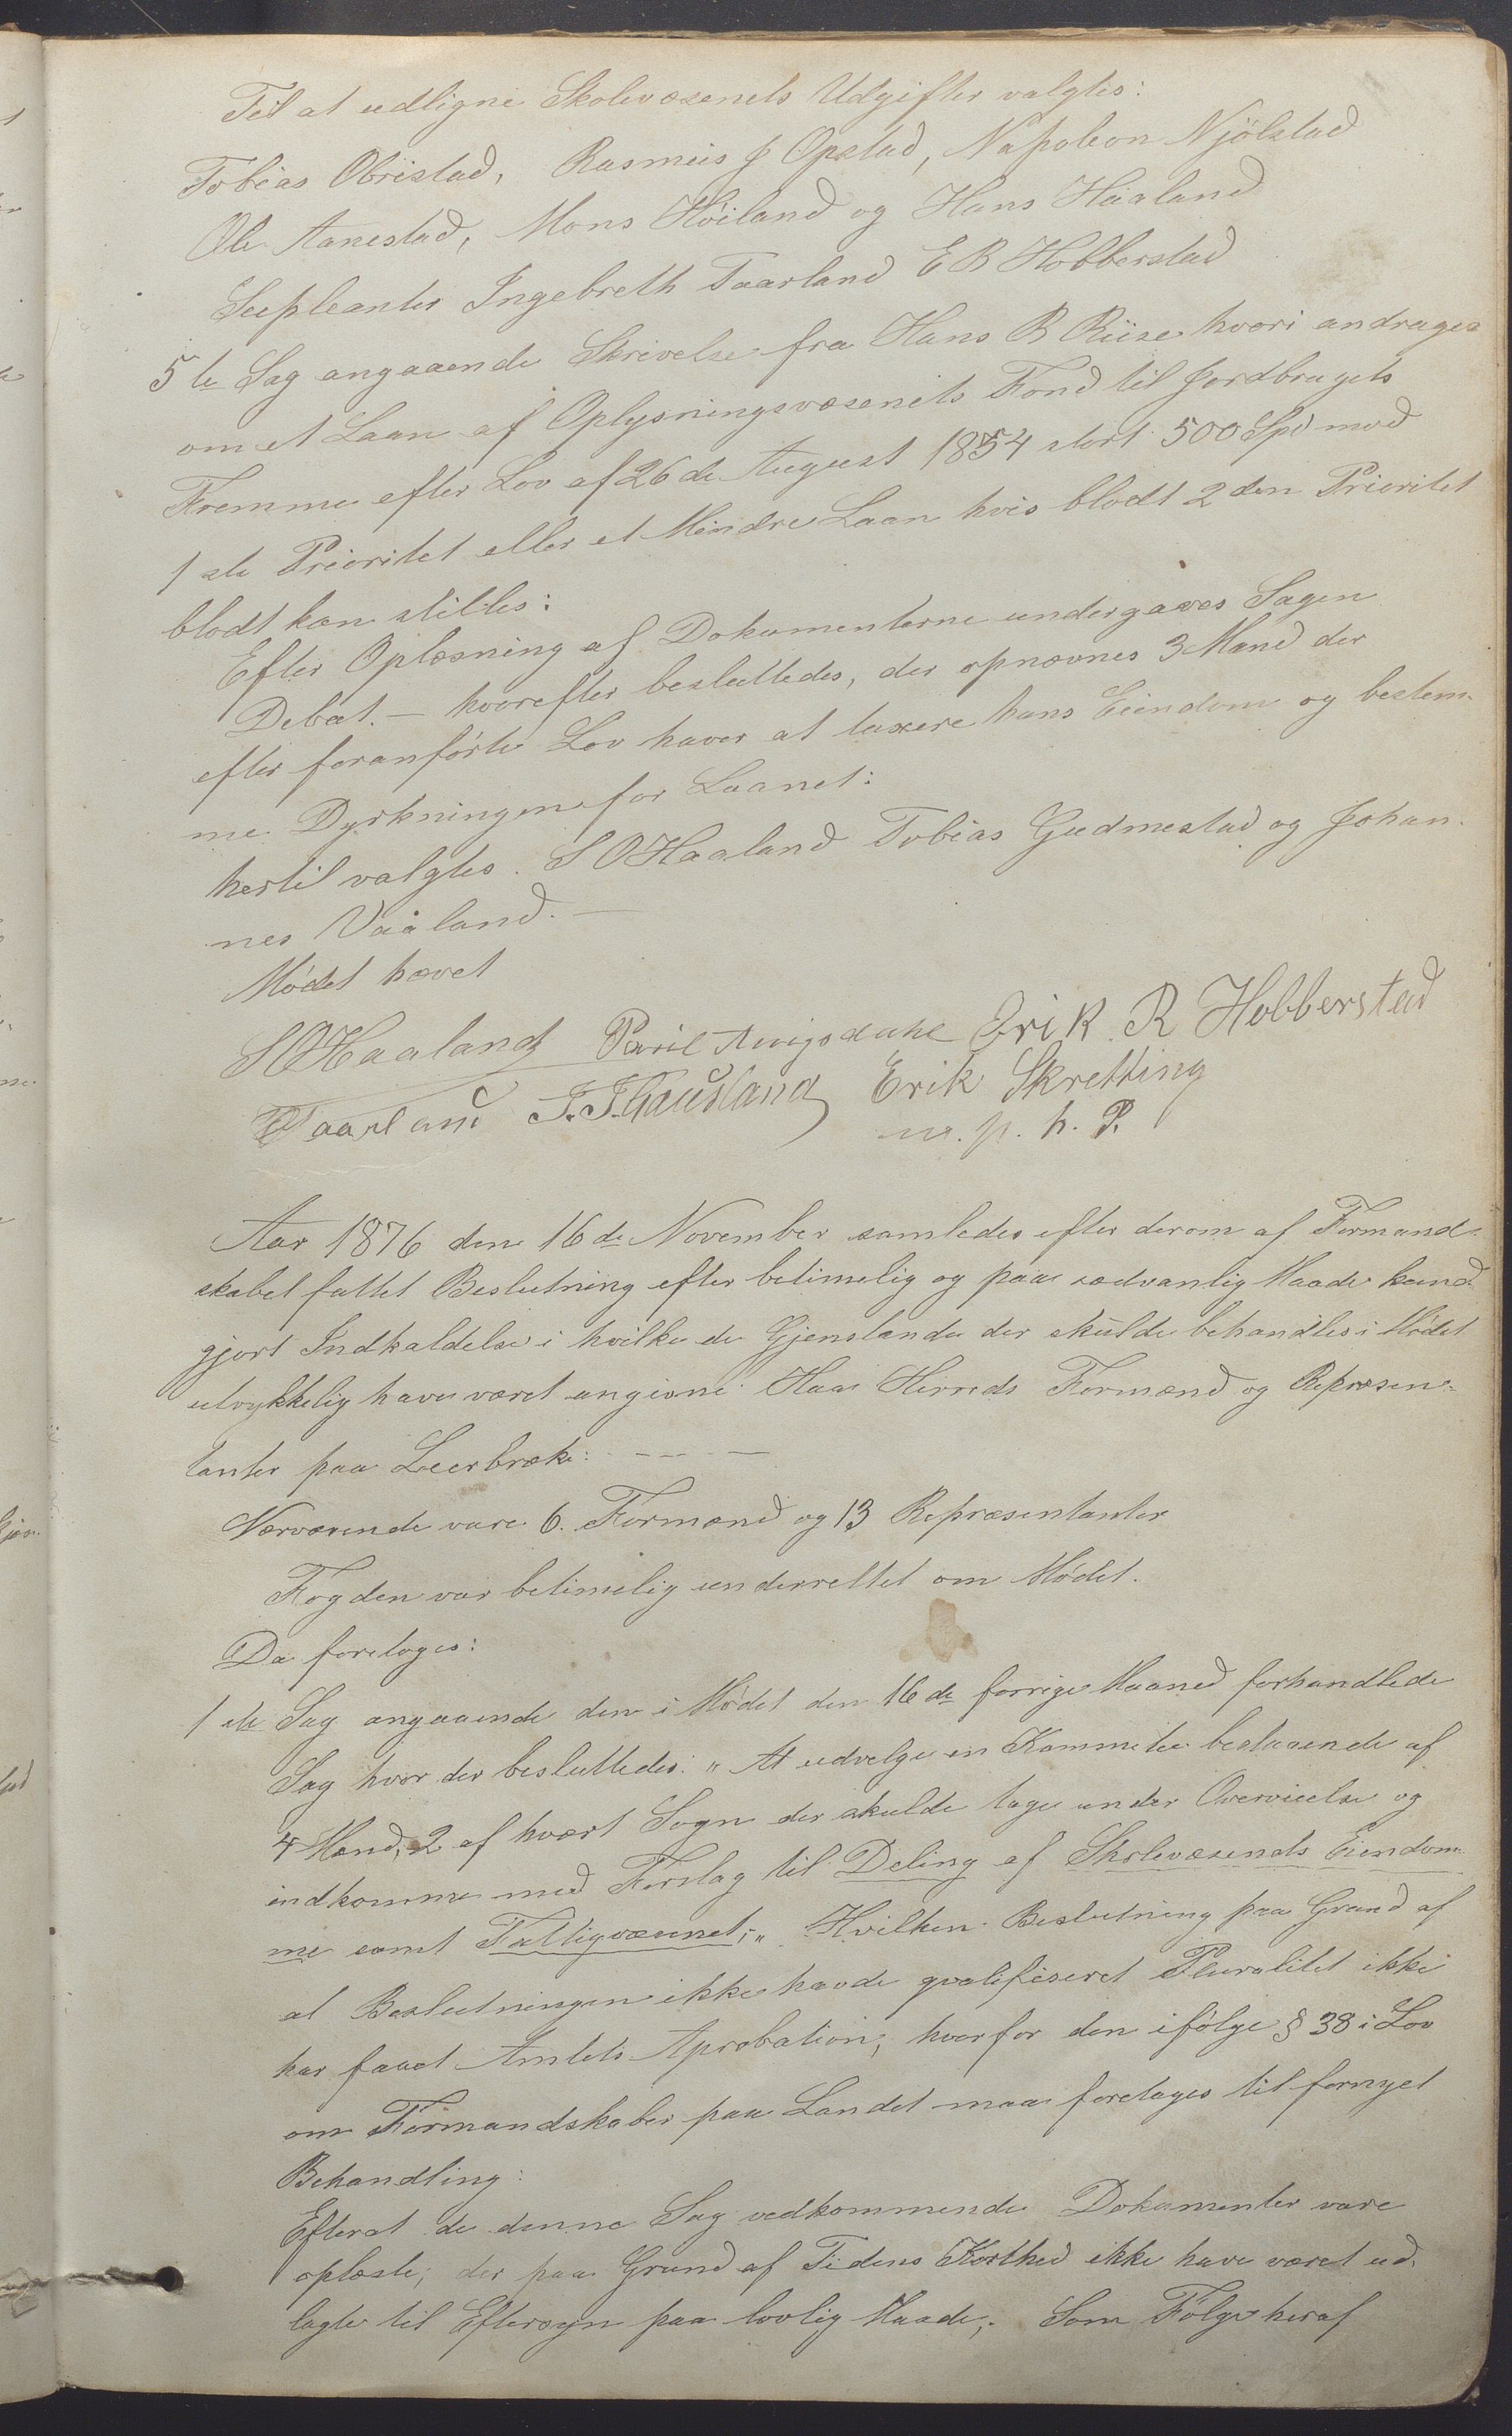 Til at udligne Skolevæsenets Udgifter valgtes:
Tobias Obrestad, Rasmus J Opstad, Napoleon Njölstad
Ole Aanestad, Mons Höiland og Hans Haaland
Supleanter Ingebreth Taarland E B Hobberstad
5te Sag angaaende Skrivelse fra Hans B Riise hvori andrages
om et Laan af Oplysningsvæsenets Fond til Jordbrugets
Fremme efter Lov af 26de August 1854 stort 500 Spd mod
1ste Prioritet eller et Mindre Laan hvis blodt 2den Prioritet
blodt kan stilles:
Efter Oplæsning af Dokumenterne undergaves Sagen
Debat. — hvorefter besluttedes, der opnævnes 3 Mand der
efter foranförte Lov haver at taxere hans Eiendom og bestem-
me Dyrkningen for Laanet:
hertil valgtes. S O Haaland Tobias Gudmestad og Johan-
nes Vaaland. —
Mödet hævet
S O Haaland Erik R Hobberstad
Taarland Erik Skretting
m. p. h. P.
Aar 1876 den 16de November samledes efter derom af Formand-
skabet fattet Beslutning efter betimelig og paa sædvanlig Maade kund-
gjort Indkaldelse i hvilke de Gjenstande der skulde behandles i Mödet
udtrykkelig have været angivne Haa Herreds Formænd og Repræsen-
tanter paa Leerbræk: - - - —
Nærværende vare 6. Formænd og 13 Repræsentanter
Fogden var betimelig underrettet om Mödet.
Da foretoges:
1ste Sag angaaende den i Mödet den 16de forrige Maaned forhandlede
Sag hvor der besluttedes: "At udvelge en Kommitee bestaaende af
4 Mænd, 2 af hvært Sogn der skulde tage under Overvieelse og
indkomme med Forslag til Deling af Skolevæsends Eiendom-
me samt Fattigvæsenet;" Hvilken Beslutning paa Grund af
at Beslutningen ikke havde qvalifiseret Pluralitet ikke
har faaet Amtets Aprobation; hvorfor den ifölge § 38 i Lov
om Formandskaber paa Landet maa foretages til fornyet
Behandling:
Efterat de denne Sag vedkommende Dokumenter vare
oplæste; der paa Grund af Tidens Korthed ikke have været ud-
lagte til Eftersyn paa lovlig Maade; Som Fölge heraf